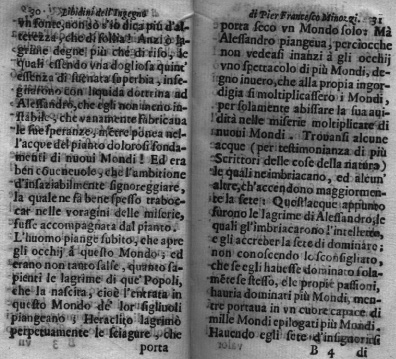 30 Libidini dell'Ingegno
vn fonte, non sò s'io dica più d'al-
terezza, che di follia! Anzi à la-
grime degne più che di riso, le
quali essendo vna dogliosa quint'
essenza di suenata superbia, inse-
gnirono con liquida dottrina ad
Alessandro, che egli non meno in-
stabile, che vanamente fabricaua
le sue speranze, mentre ponea nel-
l'acque del pianto dolorosi fonda-
menti di nuoui Mondi! Ed era
ben cōueneuole, che l'ambitione
d'insaziabilmente signoreggiare,
la quale ne fà bene spesso traboc-
car nelle voragini delle miserie,
fusse accompagnata dal pianto.
L'huomo piange subito, che apre
gli occhij à questo Mondo; ed
erano non tanto salse, quanto sa-
pienti le lagrime di que' Popoli,
che la nascita, cioè l'entrata in
questo Mondo de' lor figliuoli
piangeano; Heraclito lagrimò
perpetuamente le sciagure, che
porta
di Pier Francesco Minozzi. 31
porta seco vn Mondo solo; Mà
Alessandro piangeua, perciocche
non vedeasi inanzi à gli occhij
vno spettacolo di più Mondi, de-
gno inuero, che alla propia ingor-
digia si moltiplicassero i Mondi,
per solamente abissare la sua aui-
dità nelle miserie moltiplicare di
nuoui Mondi. Trouansi alcune
acque (per testimonianza di più
Scrittori delle cose della natura)
le quali neimbriacano, ed alcun'
altre, ch'accendono maggiormen-
te la sete: Quest'acque appunto
furono le lagrime di Alessandro, le
quali gl'imbriacarono l'intelletto,
e gli accrebber la sete di dominare;
non conoscendo lo sconsigliato,
che se egli hauesse dominato sola-
mēte se stesso, e le propie passioni,
hauria dominati più Mondi, men-
tre portaua in vn cubre capace di
mille Mondi epilogati più Mondi.
Hauendo egli sete d'insignorirsi
B 4 di